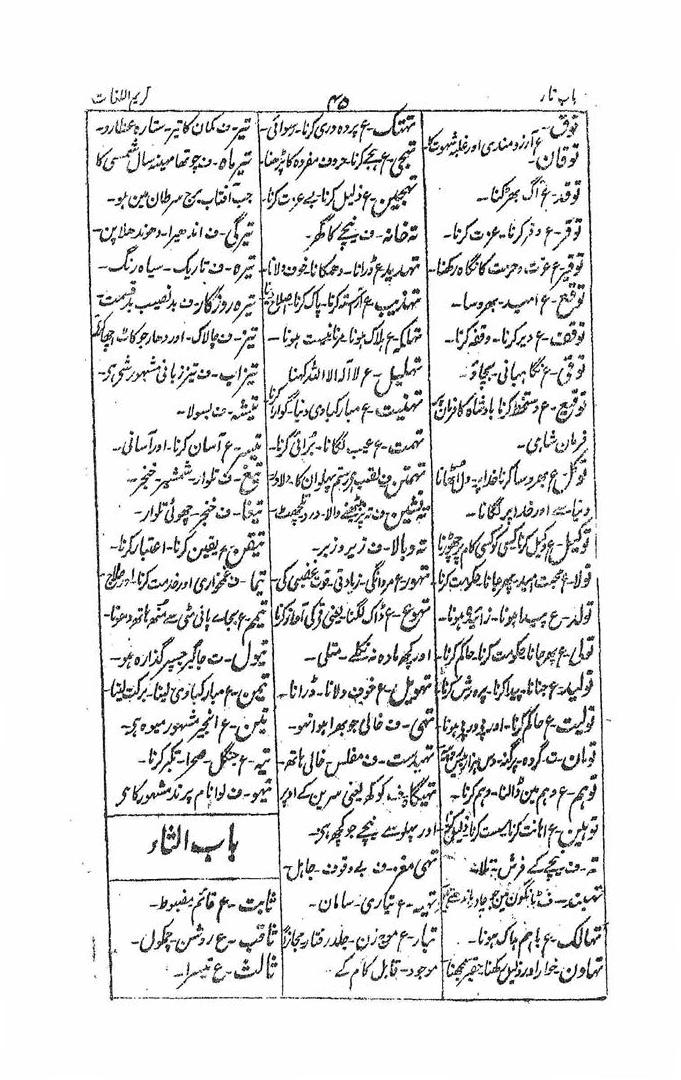 باب تار
۴۵
کریم اللغات
توق
توقان - ع آرزومندی اور غلبہ شہوت کا
توقد - ع آگ بھڑکنا -
توقر - ع وقر کرنا - عزت کرنا -
توقیر - ع عزت و حرمت کا نگاہ رکھنا -
توقع - ع امید - بھروسا -
توقف - ع دیر کرنا - وقفہ کرنا -
توقی - ع نگاہبانی - بچاؤ -
توقیع - ع دستخط کرنا بادشاہ کا فرمان پر
فرمان شاہی -
توکل - ع بھروسا کرنا خدا پر دل اٹھانا
دنیا سے اور خدا پر لگانا -
توکیل - ع وکیل کرنا کسی کو کسی کام پر چھوڑنا
تولا - ع محبت امید پھر جانا حکومت کرنا
تولد - ع پیدا ہونا - زائیدہ ہونا -
تولی - ع پھر جانا حکومت کرنا حاکم کرنا -
تولید - ع جنانا پیدا کرنا - پرورش کرنا
تولیت - ع حاکم کرنا - اور پی در پی ہونا
تومان - ت گروہ - پرگنہ - دس ہزار
توہم - ع وہم مین ڈالنا - وہم کرنا -
توہین - ع اہانت کرنا سست کرنا ذلیل کرنا
تہ - ف نیچے کے فرش تلا
تہبند - ف
تہالک - ع باہم ہلاک ہونا -
تہاون - خوار اور ذلیل رکھنا حقیر سمجھنا
تہتک - ع پردہ دری کرنا - رسوائی -
تہجی - ع ہجے کرنا - حروف مفردہ کا پڑھنا
تہجین - ع ذلیل کرنا - بے عزت کرنا
تہ خانہ - ف نیچے کا گھر
تہدید - ع ڈرانا - دھمکانا - خوف دلانا
تہذیب - ع آراستہ کرنا - پاک کرنا اصلاح دینا
تہلکہ - ع ہلاک ہونا - مرنا نیست ہونا -
تہلیل - ع لا الہ الا اللہ کہنا
تہنیت - ع مبارکبادی دنیا - گوارا کرنا
تہمت - ع عیب لگانا - برائی کرنا -
تہمتن - ف لقب ہی رستم پہلوان کا - دلاور
تہ نشین - ف تہ پر بیٹھنے والا - درد تلچھٹ -
تہ و بالا - ف زیر و زبر -
تہور - ع مردانگی - زیادتی قوت غضبی کی -
تہوع - ع ڈاک لگنا - یعنی قی کی آواز کرنا
اور کچھ مادہ نہ نکلے - متلی -
تہویل - ع خوف دلانا - ڈرانا -
تہی - ف خالی جو بھرا ہوا نہو -
تہیدست - ف مفلس - خالی ہاتھ -
تہیگاہ - ف کوکھ یعنی سرین کے اوپر
اور پہلو سے نیچے جو کچھ ہی -
تہی مغز - ف بے وقوف - جاہل
تہیہ - ع تیاری - سامان -
تیار - ع موج زن - جلد رفتار مجازاً
موجود - قابل کام کے -
تیر - ف کمان کا تیر - ستارہ عطارد -
تیر ماہ - ف چوتھا مہینہ سال شمسی کا
جب آفتاب برج سرطان مین ہو -
تیرگی - ف اندھیرا - دھندھلا پن -
تیرہ - ف تاریک - سیاہ رنگ -
تیرہ روزگار - ف بد نصیب بد قسمت -
تیز - ف چالاک - اور دھار جو کاٹ
تیزاب - ف تیز زبانی مشہور شی ہی -
تیشہ - ف بسولا -
تیسیر - ع آسان کرنا - اور آسانی -
تیغ - ف تلوار - شمشیر - خنجر -
تیغا - ف خنجر - چھوٹی تلوار -
تیقن - ع یقین کرنا - اعتبار کرنا -
تیما - ف غمخواری اور خدمت کرنا - اور علاج -
تیمم - ع بجاے پانی مٹی سے منہ ہاتھ دھونا -
تیول - ت جاگیر جسپر گذارہ ہو -
تیمن - ع مبارکبادی لینا - برکت لینا
تین - ع انجیر مشہور میوہ ہی -
تیہ - ع جنگل - صحرا - تکبر کرنا -
تیہو - ف لوا نام پرند مشہور کا ہی
باب الثاء
ثابت - ع قائم مضبوط -
ثاقب - ع روشن - چمکول -
ثالث - ع تیسرا -